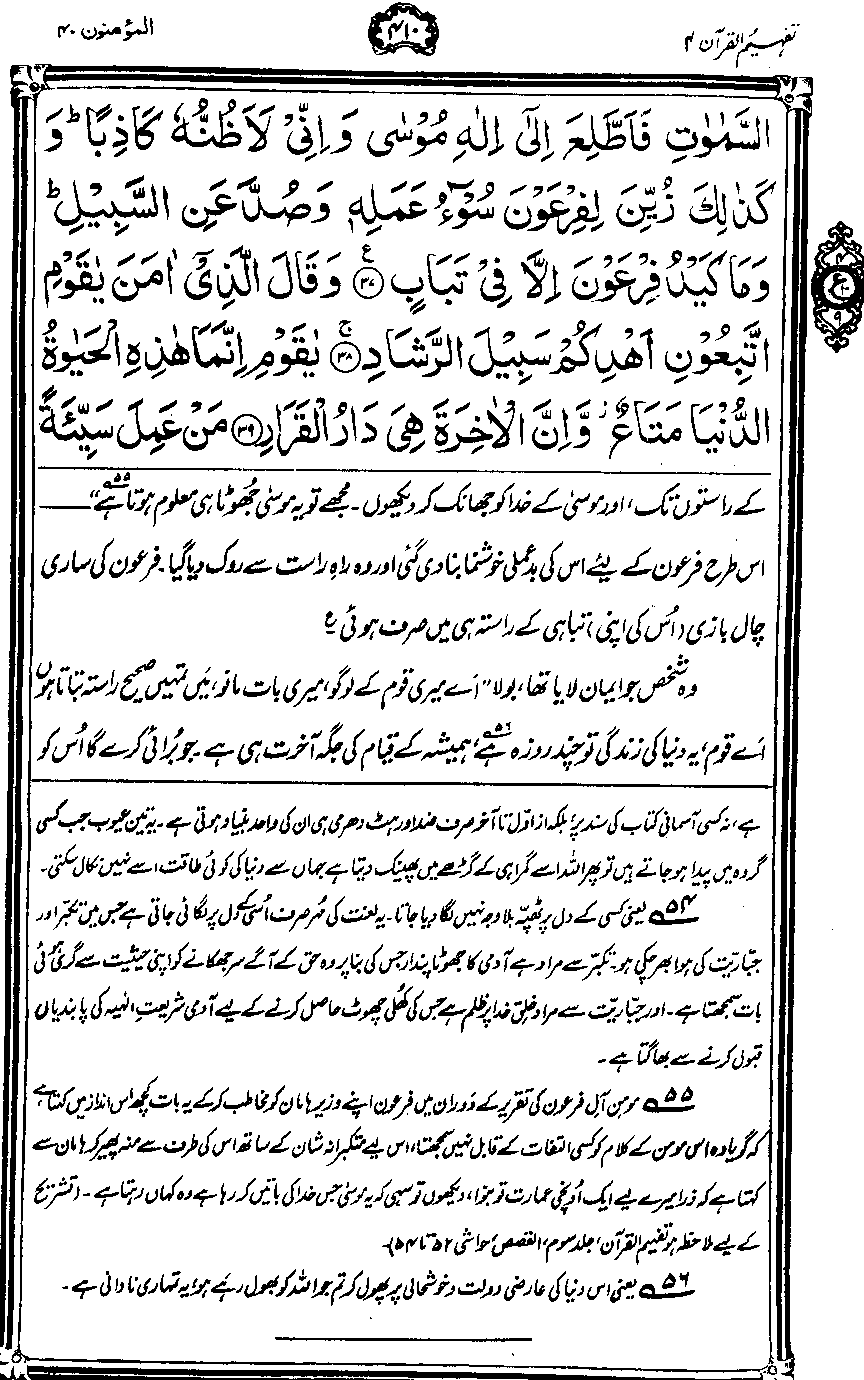 تفہیم القرآن ۴
۴۱۰
المؤمنون ۴۰
السَّمٰوٰتِ فَاَطَّلِعَ اِلٰٓى اِلٰهِ مُوْسٰى وَاِنِّىْ لَاَظُنُّهٗ كَاذِبًا ؕ وَ
كَذٰلِكَ زُيِّنَ لِفِرْعَوْنَ سُوْٓءُ عَمَلِهٖ وَصُدَّ عَنِ السَّبِيْلِ ؕ
وَمَا كَيْدُ فِرْعَوْنَ اِلَّا فِىْ تَبَابٍ ﴿۳۷﴾ وَقَالَ الَّذِىْۤ اٰمَنَ يٰقَوْمِ
اتَّبِعُوْنِ اَهْدِكُمْ سَبِيْلَ الرَّشَادِ ﴿۳۸﴾ يٰقَوْمِ اِنَّمَا هٰذِهِ الْحَيٰوةُ
الدُّنْيَا مَتَاعٌ وَّاِنَّ الْاٰخِرَةَ هِىَ دَارُ الْقَرَارِ ﴿۳۹﴾ مَنْ عَمِلَ سَيِّئَةً
۴
ع
۱۰
۹
کے راستوں تک، اور موسیٰ کے خدا کو جھانک کر دیکھوں۔ مجھے تو یہ موسیٰ جھُوٹا ہی معلوم ہوتا ہے۵۵"
اس طرح فرعون کے لیے اس کی بدعملی خوشنما بنا دی گئی اور وہ راہِ راست سے روک دیا گیا۔ فرعون کی ساری
چال بازی (اُس کی اپنی) تباہی کے راستہ ہی میں صرف ہوئی ع
وہ شخص جو ایمان لایا تھا، بولا "اَے میری قوم کے لوگو، میری بات مانو، مَیں تمہیں صحیح راستہ بتاتا ہوں
اَے قوم، یہ دنیا کی زندگی تو چند روزہ ہے۵۶، ہمیشہ کے قیام کی جگہ آخرت ہی ہے۔ جو بُرائی کرے گا اُس کو
ہے، نہ کسی آسمانی کتاب کی سند پر، بلکہ از اوّل تا آخر صرف ضد اور ہٹ دھرمی ہی ان کی واحد بنیاد ہوتی ہے۔ یہ تین عیوب جب کسی
گروہ میں پیدا ہو جاتے ہیں تو پھر اللہ اسے گمراہی کے گڑھے میں پھینک دیتا ہے جہاں سے دنیا کی کوئی طاقت اسے نہیں نکال سکتی۔
۵۴ یعنی کسی کے دل پر ٹھپّہ بلا وجہ نہیں لگا دیا جاتا۔ یہ لعنت کی مُہر صرف اُسی کے دل پر لگائی جاتی ہے جس میں تکبّر اور
جبّاریت کی ہوا بھر چکی ہو۔ تکبّر سے مراد ہے آدمی کا جھوٹا پندار جس کی بنا پر وہ حق کے آگے سر جھکانے کو اپنی حیثیت سے گری ہوئی
بات سمجھتا ہے۔ اور جبّاریت سے مراد خلقِ خدا پر ظلم ہے جس کی کھُلی چھوٹ حاصل کرنے کے لیے آدمی شریعتِ الٰہیہ کی پابندیاں
قبول کرنے سے بھاگتا ہے۔
۵۵ مومنِ آلِ فرعون کی تقریر کے دَوران میں فرعون اپنے وزیر ہامان کو مخاطب کر کے یہ بات کچھ اس انداز میں کہتا ہے
کہ گویا وہ اس مومن کے کلام کو کسی التفات کے قابل نہیں سمجھتا، اس لیے متکبرانہ شان کے ساتھ اس کی طرف سے منہ پھیر کر ہامان سے
کہتا ہے کہ ذرا میرے لیے ایک اُونچی عمارت تو بنوا، دیکھوں تو سہی کہ یہ موسیٰ جس خدا کی باتیں کر رہا ہے وہ کہاں رہتا ہے۔ (تشریح
کے لیے ملاحظہ ہو تفہیم القرآن، جلد سوم، القصص، حواشی ۵۲ تا ۵۴)۔
۵۶ یعنی اس دنیا کی عارضی دولت و خوشحالی پر پھُول کر تم جو اللہ کو بھول رہے ہو، یہ تمہاری نادانی ہے۔